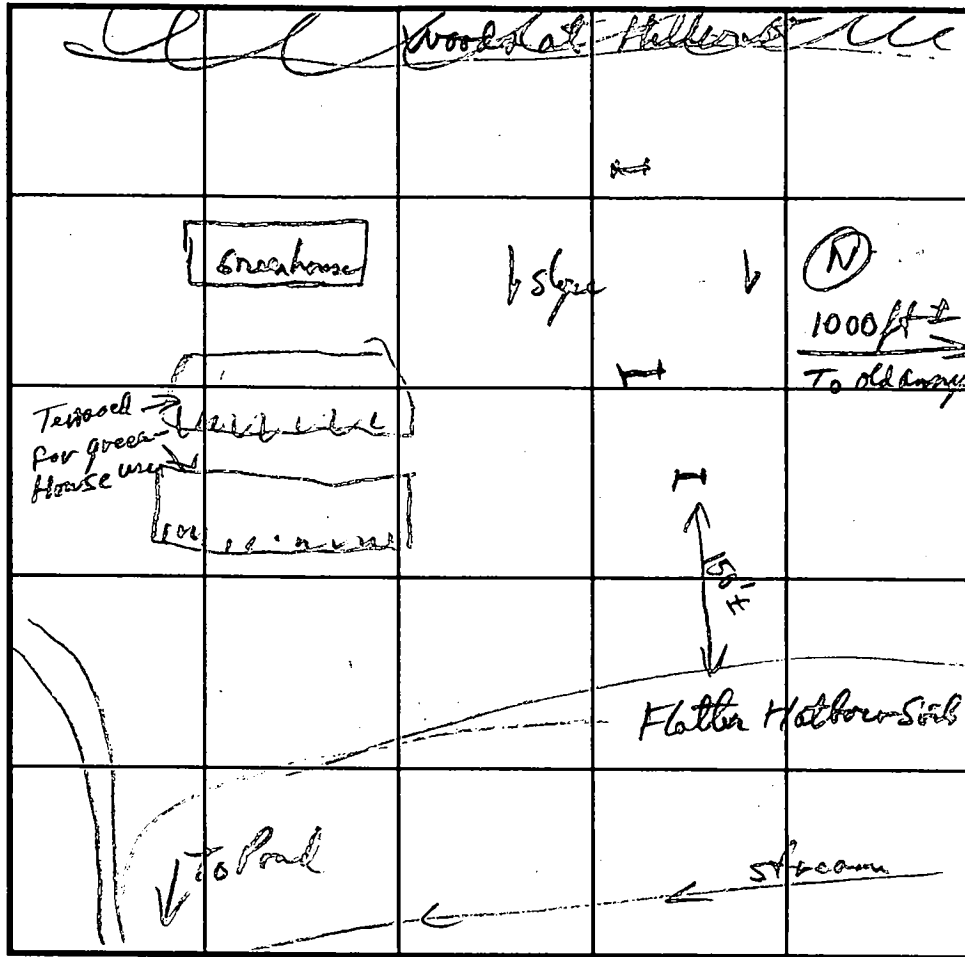 Woodslat Hillcrest
Greenhouse
↓ slope ↓
N
1000 ft ±
To old
Terraced
for green-
House use
150'±
Flatter Hatboro Soils
To Pond
stream